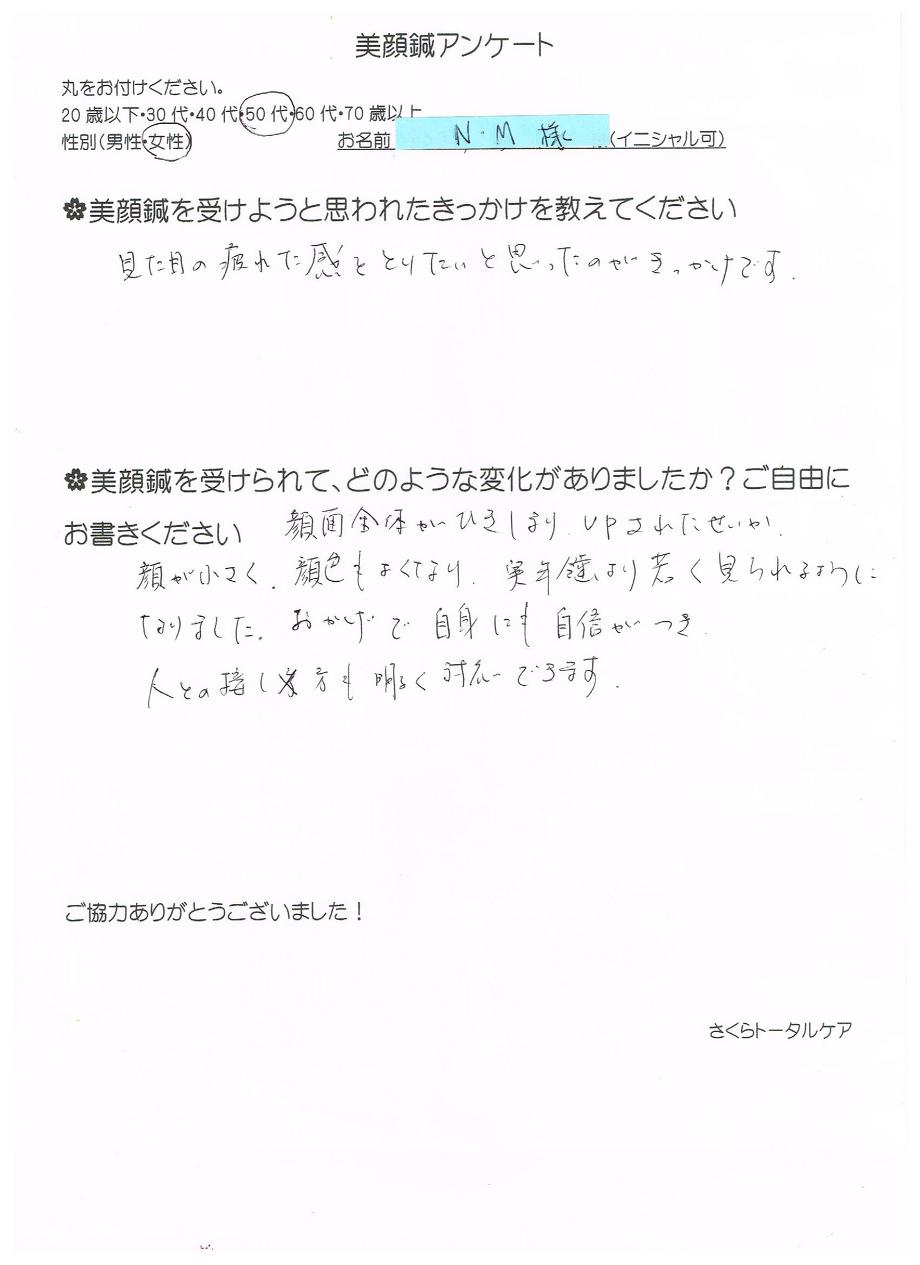 美顔鍼アンケート
丸をお付けください。
20歳以下・30代・40代・50代・60代・70歳以上
性別(男性・女性) お名前 N・M 様 (イニシャル可)
美顔鍼を受けようと思われたきっかけを教えてください
見た目の疲れた感をとりたいと思ったのがきっかけです.
美顔鍼を受けられて、どのような変化がありましたか？ご自由に
お書きください 顔面全体がひきしまり、UPされたせいか、
顔が小さく、顔色もよくなり、実年齢より若く見られるように
なりました。おかげで自身にも自信がつき、
人との接し方も明るく対応できます.
ご協力ありがとうございました！
さくらトータルケア